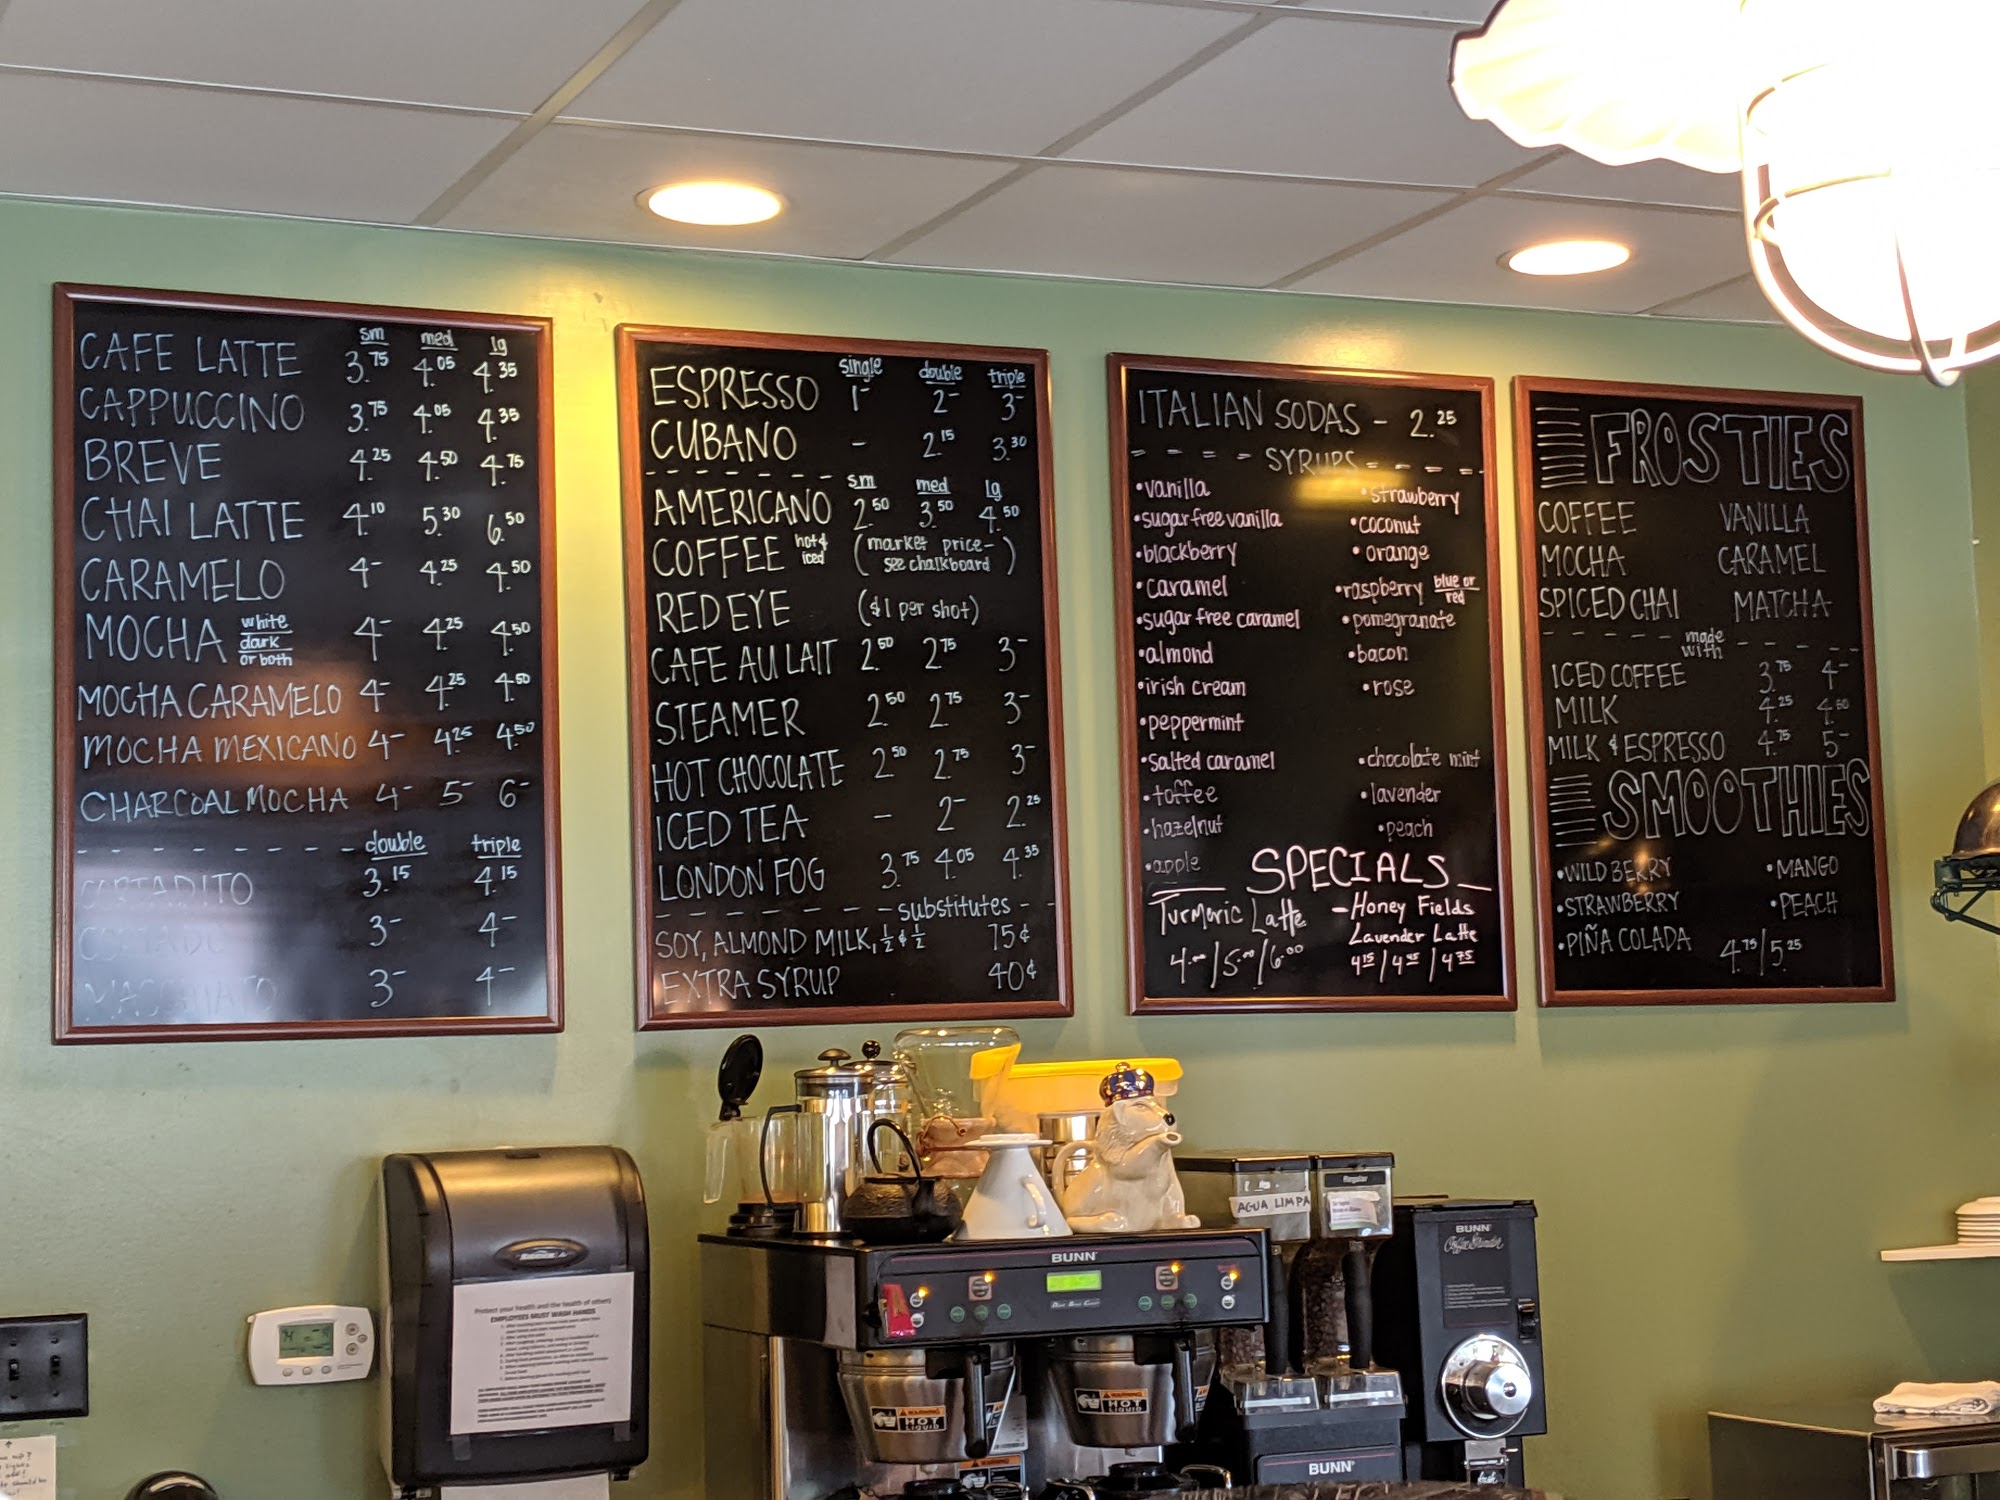 sm med lg
CAFE LATTE 3.75 4.05 4.35
CAPPUCCINO 3.75 4.05 4.35
BREVE 4.25 4.50 4.75
CHAI LATTE 4.10 5.30 6.50
CARAMELO 4- 4.25 4.50
MOCHA white dark or both 4- 4.25 4.50
MOCHA CARAMELO 4- 4.25 4.50
MOCHA MEXICANO 4- 4.25 4.50
CHARCOAL MOCHA 4- 5- 6-
double triple
CORTADITO 3.15 4.15
CORTADO 3- 4-
MACCHIATO 3- 4-
single double triple
ESPRESSO 1- 2- 3-
CUBANO - 2.15 3.30
sm med lg
AMERICANO 2.50 3.50 4.50
COFFEE hot & iced (market price- see chalkboard)
RED EYE (&1 per shot)
CAFE AU LAIT 2.50 2.75 3-
STEAMER 2.50 2.75 3-
HOT CHOCOLATE 2.50 2.75 3-
ICED TEA - 2- 2.25
LONDON FOG 3.75 4.05 4.35
substitutes
SOY, ALMOND MILK, ½ & ½ 75¢
EXTRA SYRUP 40¢
ITALIAN SODAS - 2.25
SYRUPS
•vanilla
•sugar free vanilla
•blackberry
•caramel
•sugar free caramel
•almond
•irish cream
•peppermint
•salted caramel
•toffee
•hazelnut
•apple
•strawberry
•coconut
•orange
•raspberry blue or red
•pomegranate
•bacon
•rose
•chocolate mint
•lavender
•peach
SPECIALS
Turmeric Latte
4.00/5.00/6.00
-Honey Fields
Lavender Latte
4.15/4.45/4.75
FROSTIES
COFFEE VANILLA
MOCHA CARAMEL
SPICED CHAI MATCHA
made with
ICED COFFEE 3.75 4-
MILK 4.25 4.50
MILK & ESPRESSO 4.75 5-
SMOOTHIES
•WILD BERRY •MANGO
•STRAWBERRY •PEACH
•PIÑA COLADA 4.75/5.25
Protect your health and the health of others!
EMPLOYEES MUST WASH HANDS
BUNN
AGUA LIMPA
Regular
BUNN
Coffee Grinder
WARNING
HOT LIQUID
WARNING
HOT LIQUID
BUNN